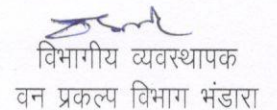 विभागीय व्यवस्थापक
वन प्रकल्प विभाग भंडारा